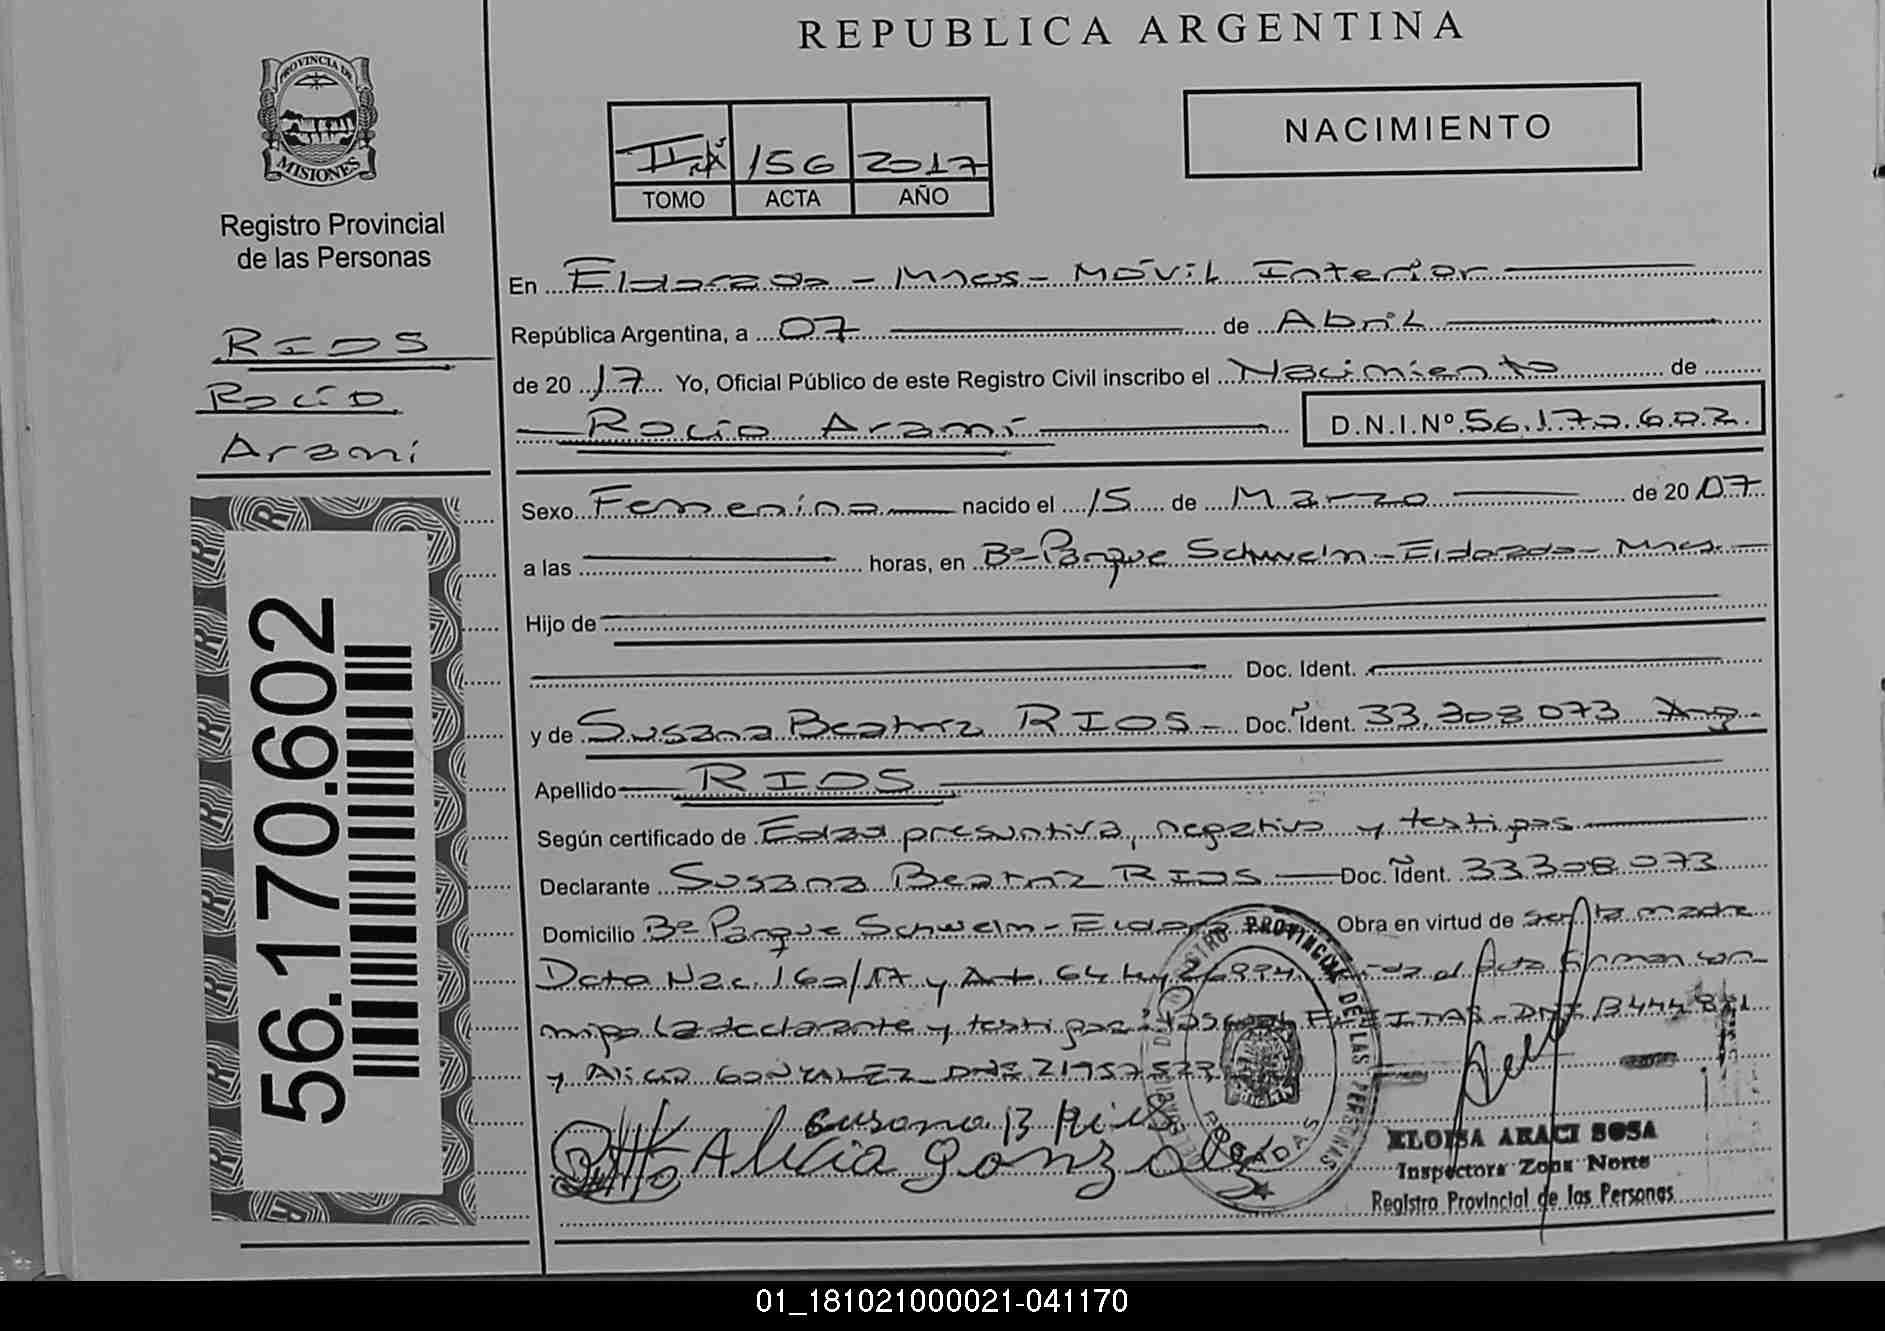 REPUBLICA ARGENTINA
PROVINCIA DE
MISIONES
Registro Provincial
de las Personas
NACIMIENTO
II 156 2017
TOMO ACTA AÑO
RIOS
Rocío
Aramí
En Eldorado - Mnes - Móvil Interior
República Argentina, a 07 de Abril
de 2017 Yo, Oficial Público de este Registro Civil inscribo el Nacimiento de
Rocío Aramí D.N.I.Nº 56.170.602.
Sexo Femenino nacido el 15 de Marzo de 2007
a las horas, en Bº Parque Schwelm - Eldorado - Mnes.
Hijo de
Doc. Ident.
y de Susana Beatriz RIOS - Doc. Ident. 33.308.073 Arg.
Apellido RIOS
Según certificado de Edad presuntiva, negativa y testigos
Declarante Susana Beatriz RIOS Doc. Ident. 33308073
Domicilio Bº Parque Schwelm - Obra en virtud de ser la madre
Dcto Nac. 160/17 y Art. 64 Ley 26994 Leída el Acta firman con-
migo la declarante y testigos: DNI 13444
y Alicia GONZALEZ DNI 21957573
Susana B Rios
Alicia Gonzalez
REGISTRO PROVINCIAL DE LAS PERSONAS
POSADAS
ELOISA ARACI SOSA
Inspectora Zona Norte
Registro Provincial de las Personas
56.170.602
01_181021000021-041170